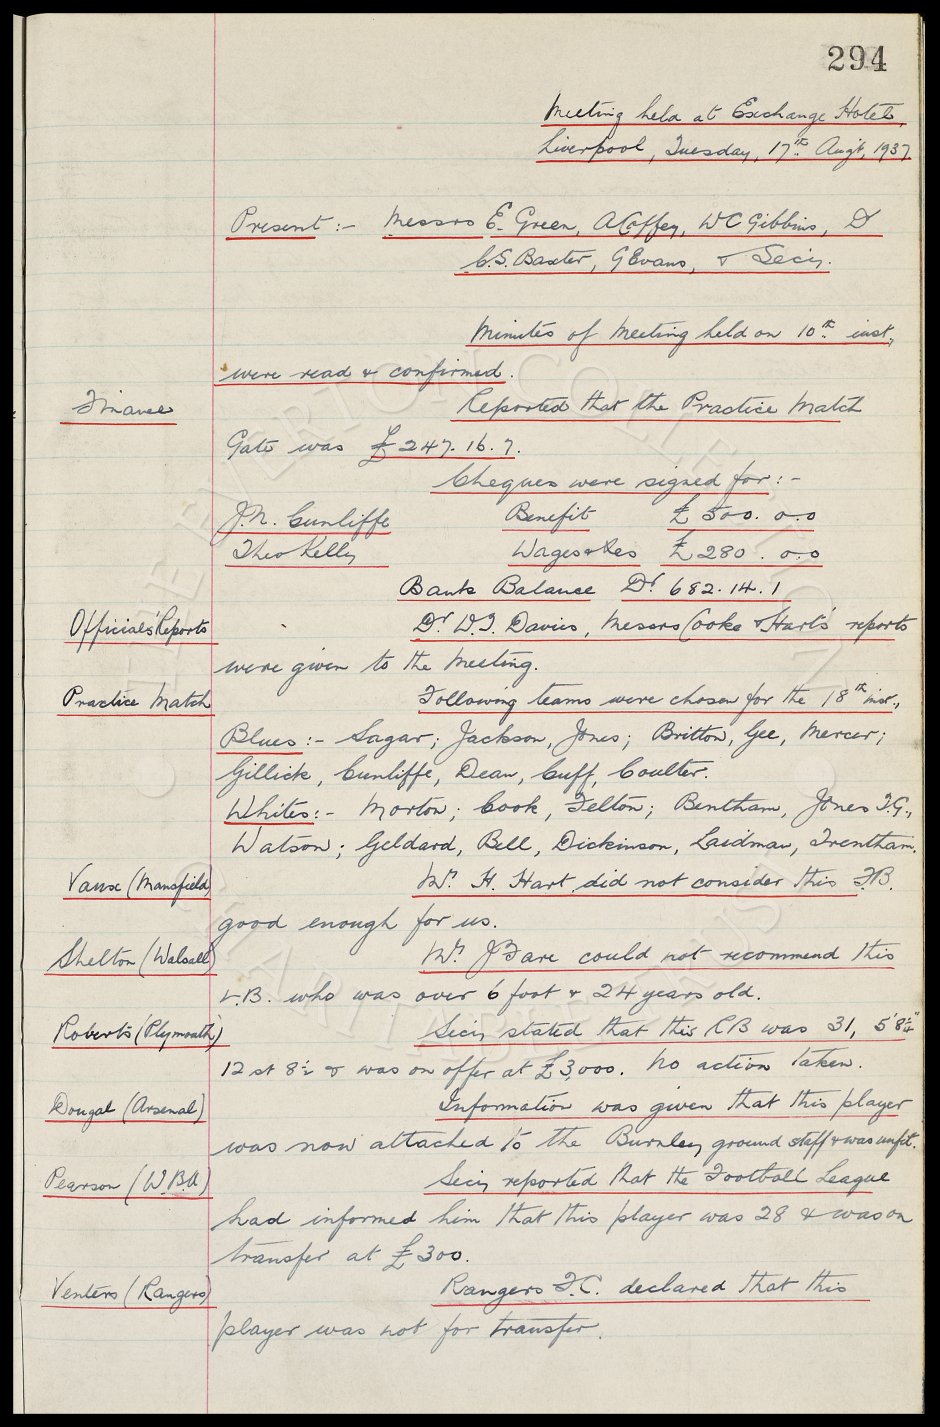 294
Meeting held at Exchange Hotel,
Liverpool, Tuesday, 17th Aug't, 1937
Present :- Messrs E. Green, A Coffey, W C Gibbins, Dr
C.S. Baxter, G Evans, & Secy.
Minutes of Meeting held on 10th inst,
were read & confirmed.
Finance
Reported that the Practice Match
Gate was £247.16.7.
Cheques were signed for :-
J.N. Cunliffe Benefit £500.0.0
Theo Kelly Wages & Res £280.0.0
Bank Balance Dr 682.14.1
Officials' Reports
Dr D.J. Davies, Messrs Cooke & Hart's reports
were given to the Meeting.
Practice Match
Following teams were chosen for the 18th inst.,
Blues :- Sagar; Jackson, Jones; Britton, Gee, Mercer;
Gillick, Cunliffe, Dean, Cuff, Coulter.
Whites :- Morton; Cook, Felton; Bentham, Jones T.G.,
Watson; Geldard, Bell, Dickinson, Laidman, Trentham.
Vaux (Mansfield)
Mr. H. Hart did not consider this F.B.
good enough for us.
Shelton (Walsall)
Mr. J Fare could not recommend this
L.B. who was over 6 foot & 24 years old.
Roberts (Plymouth)
Secy stated that this RB was 31, 5'8¼"
12 st 8½ & was on offer at £3,000. No action taken.
Dougal (Arsenal)
Information was given that this player
was now attached to the Burnley ground staff & was unfit.
Pearson (W.B.A)
Secy reported that the Football League
had informed him that this player was 28 & was on
transfer at £300.
Venters (Rangers)
Rangers F.C. declared that this
player was not for transfer.
THE EVERTON COLLECTION
CHARITABLE TRUST